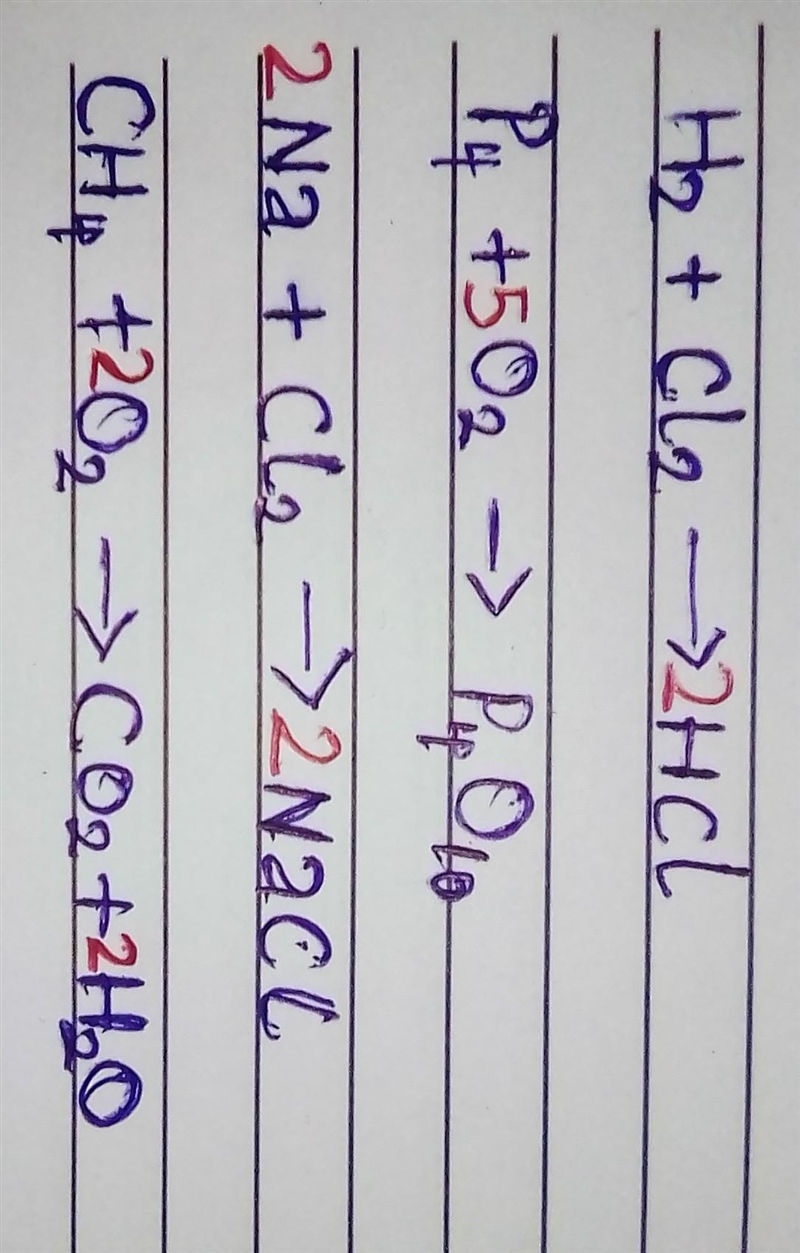 H₂ + Cl₂ → 2HCl
P₄ + 5O₂ → P₄O₁₀
2Na + Cl₂ → 2NaCl
CH₄ + 2O₂ → CO₂ + 2H₂O